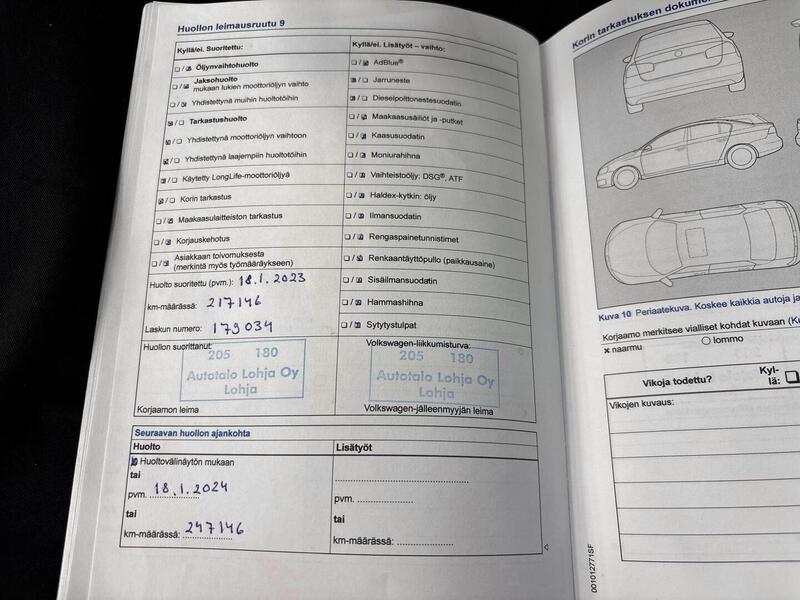 Huollon leimausruutu 9
Kyllä/ei. Suoritettu:
Öljynvaihtohuolto
Jaksohuolto
mukaan lukien moottoriöljyn vaihto
Yhdistettynä muihin huoltotöihin
Tarkastushuolto
Yhdistettynä moottoriöljyn vaihtoon
Yhdistettynä laajempiin huoltotöihin
Käytetty LongLife-moottoriöljyä
Korin tarkastus
Maakaasulaitteiston tarkastus
Korjauskehotus
Asiakkaan toivomuksesta
(merkintä myös työmääräykseen)
Huolto suoritettu (pvm.): 18.1.2023
km-määrässä: 217146
Laskun numero: 179034
Huollon suorittanut:
205 180
Autotalo Lohja Oy
Lohja
Korjaamon leima
Kyllä/ei. Lisätyöt – vaihto:
AdBlue®
Jarruneste
Dieselpolttonestesuodatin
Maakaasusäiliöt ja -putket
Kaasusuodatin
Moniurahihna
Vaihteistoöljy: DSG®, ATF
Haldex-kytkin: öljy
Ilmansuodatin
Rengaspainetunnistimet
Renkaantäyttöpullo (paikkausaine)
Sisäilmansuodatin
Hammashihna
Sytytystulpat
Volkswagen-liikkumisturva:
205 180
Autotalo Lohja Oy
Lohja
Volkswagen-jälleenmyyjän leima
Seuraavan huollon ajankohta
Huolto
Huoltovälinäytön mukaan
tai
pvm. 18.1.2024
tai
km-määrässä: 247146
Lisätyöt
pvm.
tai
km-määrässä:
Korin tarkastuksen dokumen
Kuva 10 Periaatekuva. Koskee kaikkia autoja ja
Korjaamo merkitsee vialliset kohdat kuvaan (Ku
× naarmu
lommo
Vikoja todettu?
Kyl-
lä:
Vikojen kuvaus:
001012771SF